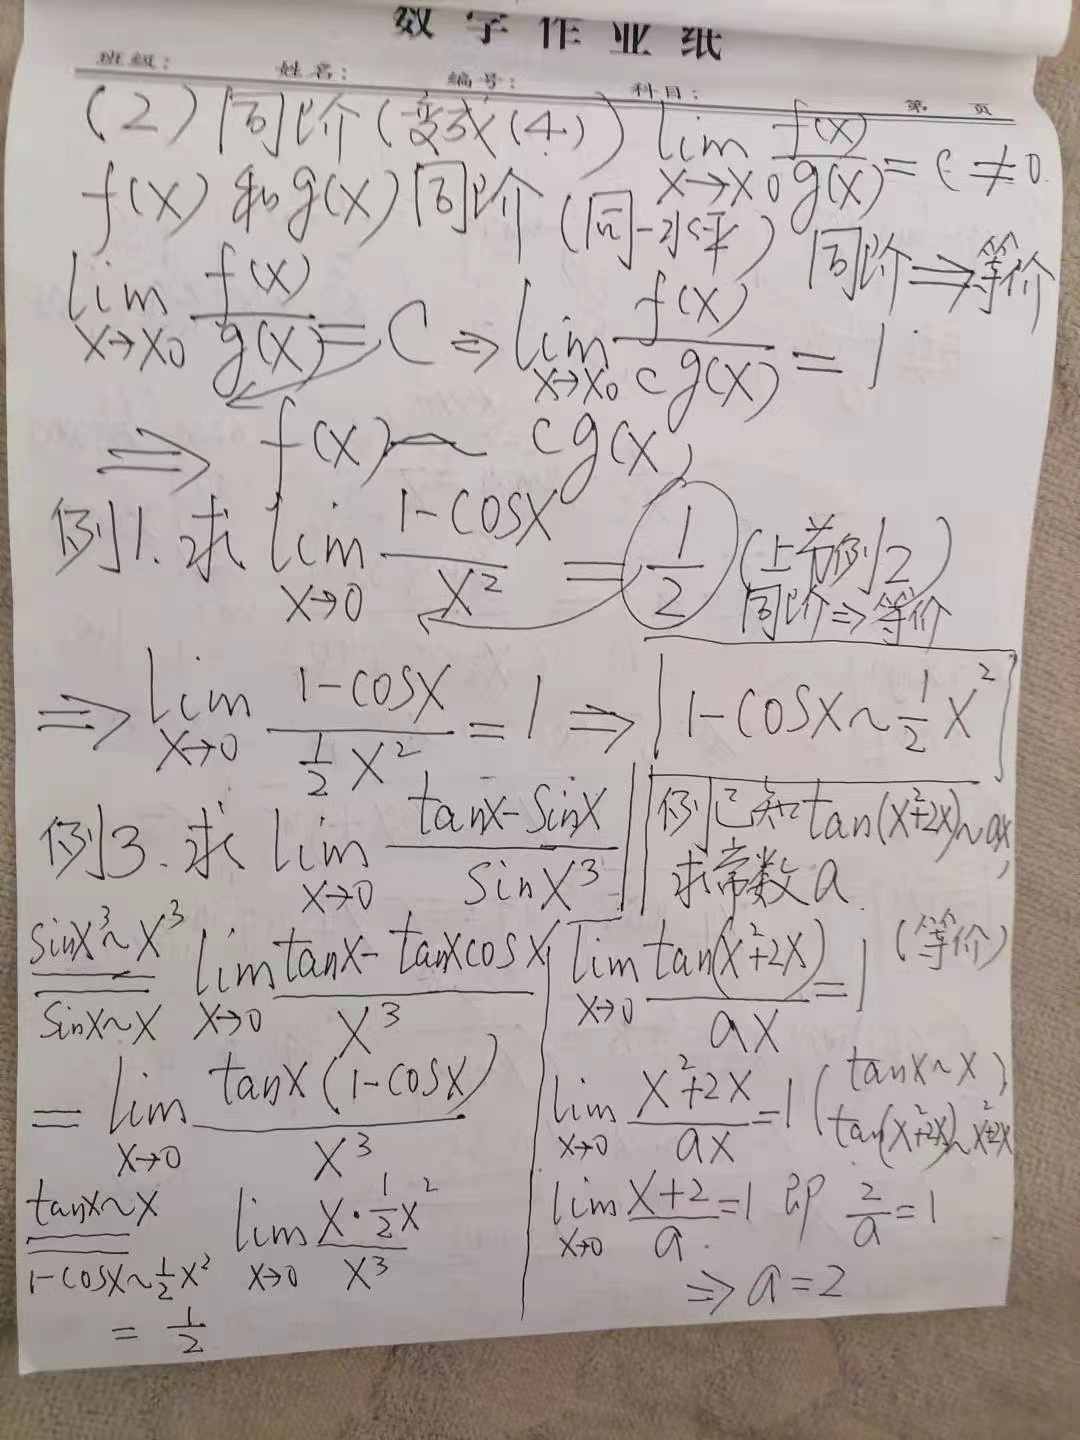 数字作业纸
班级： 姓名： 编号： 科目： 第 页
(2) 同阶 (变成(4)) lim x→x0 f(x)/g(x) = c ≠ 0.
f(x) 和 g(x) 同阶 (同一水平) 同阶 ⇒ 等价
lim x→x0 f(x)/g(x) = C ⇒ lim x→x0 f(x)/cg(x) = 1
⇒ f(x) ~ cg(x)
例1. 求 lim x→0 1-cosx/x² = 1/2 (上节例2)
同阶 ⇒ 等价
⇒ lim x→0 1-cosx/½x² = 1 ⇒ 1-cosx ~ ½x²
例3. 求 lim x→0 tanx-sinx/sinx³
sinx³~x³
sinx~x
lim x→0 tanx-tanxcosx/x³
= lim x→0 tanx(1-cosx)/x³
tanx~x
1-cosx~½x²
lim x→0 x·½x²/x³
= 1/2
例 已知 tan(x²+2x)~ax,
求常数a.
lim x→0 tan(x²+2x)/ax = 1 (等价)
lim x→0 x²+2x/ax = 1 (tanx~x)
tan(x²+2x)~x²+2x
lim x→0 x+2/a = 1 即 2/a = 1
⇒ a = 2